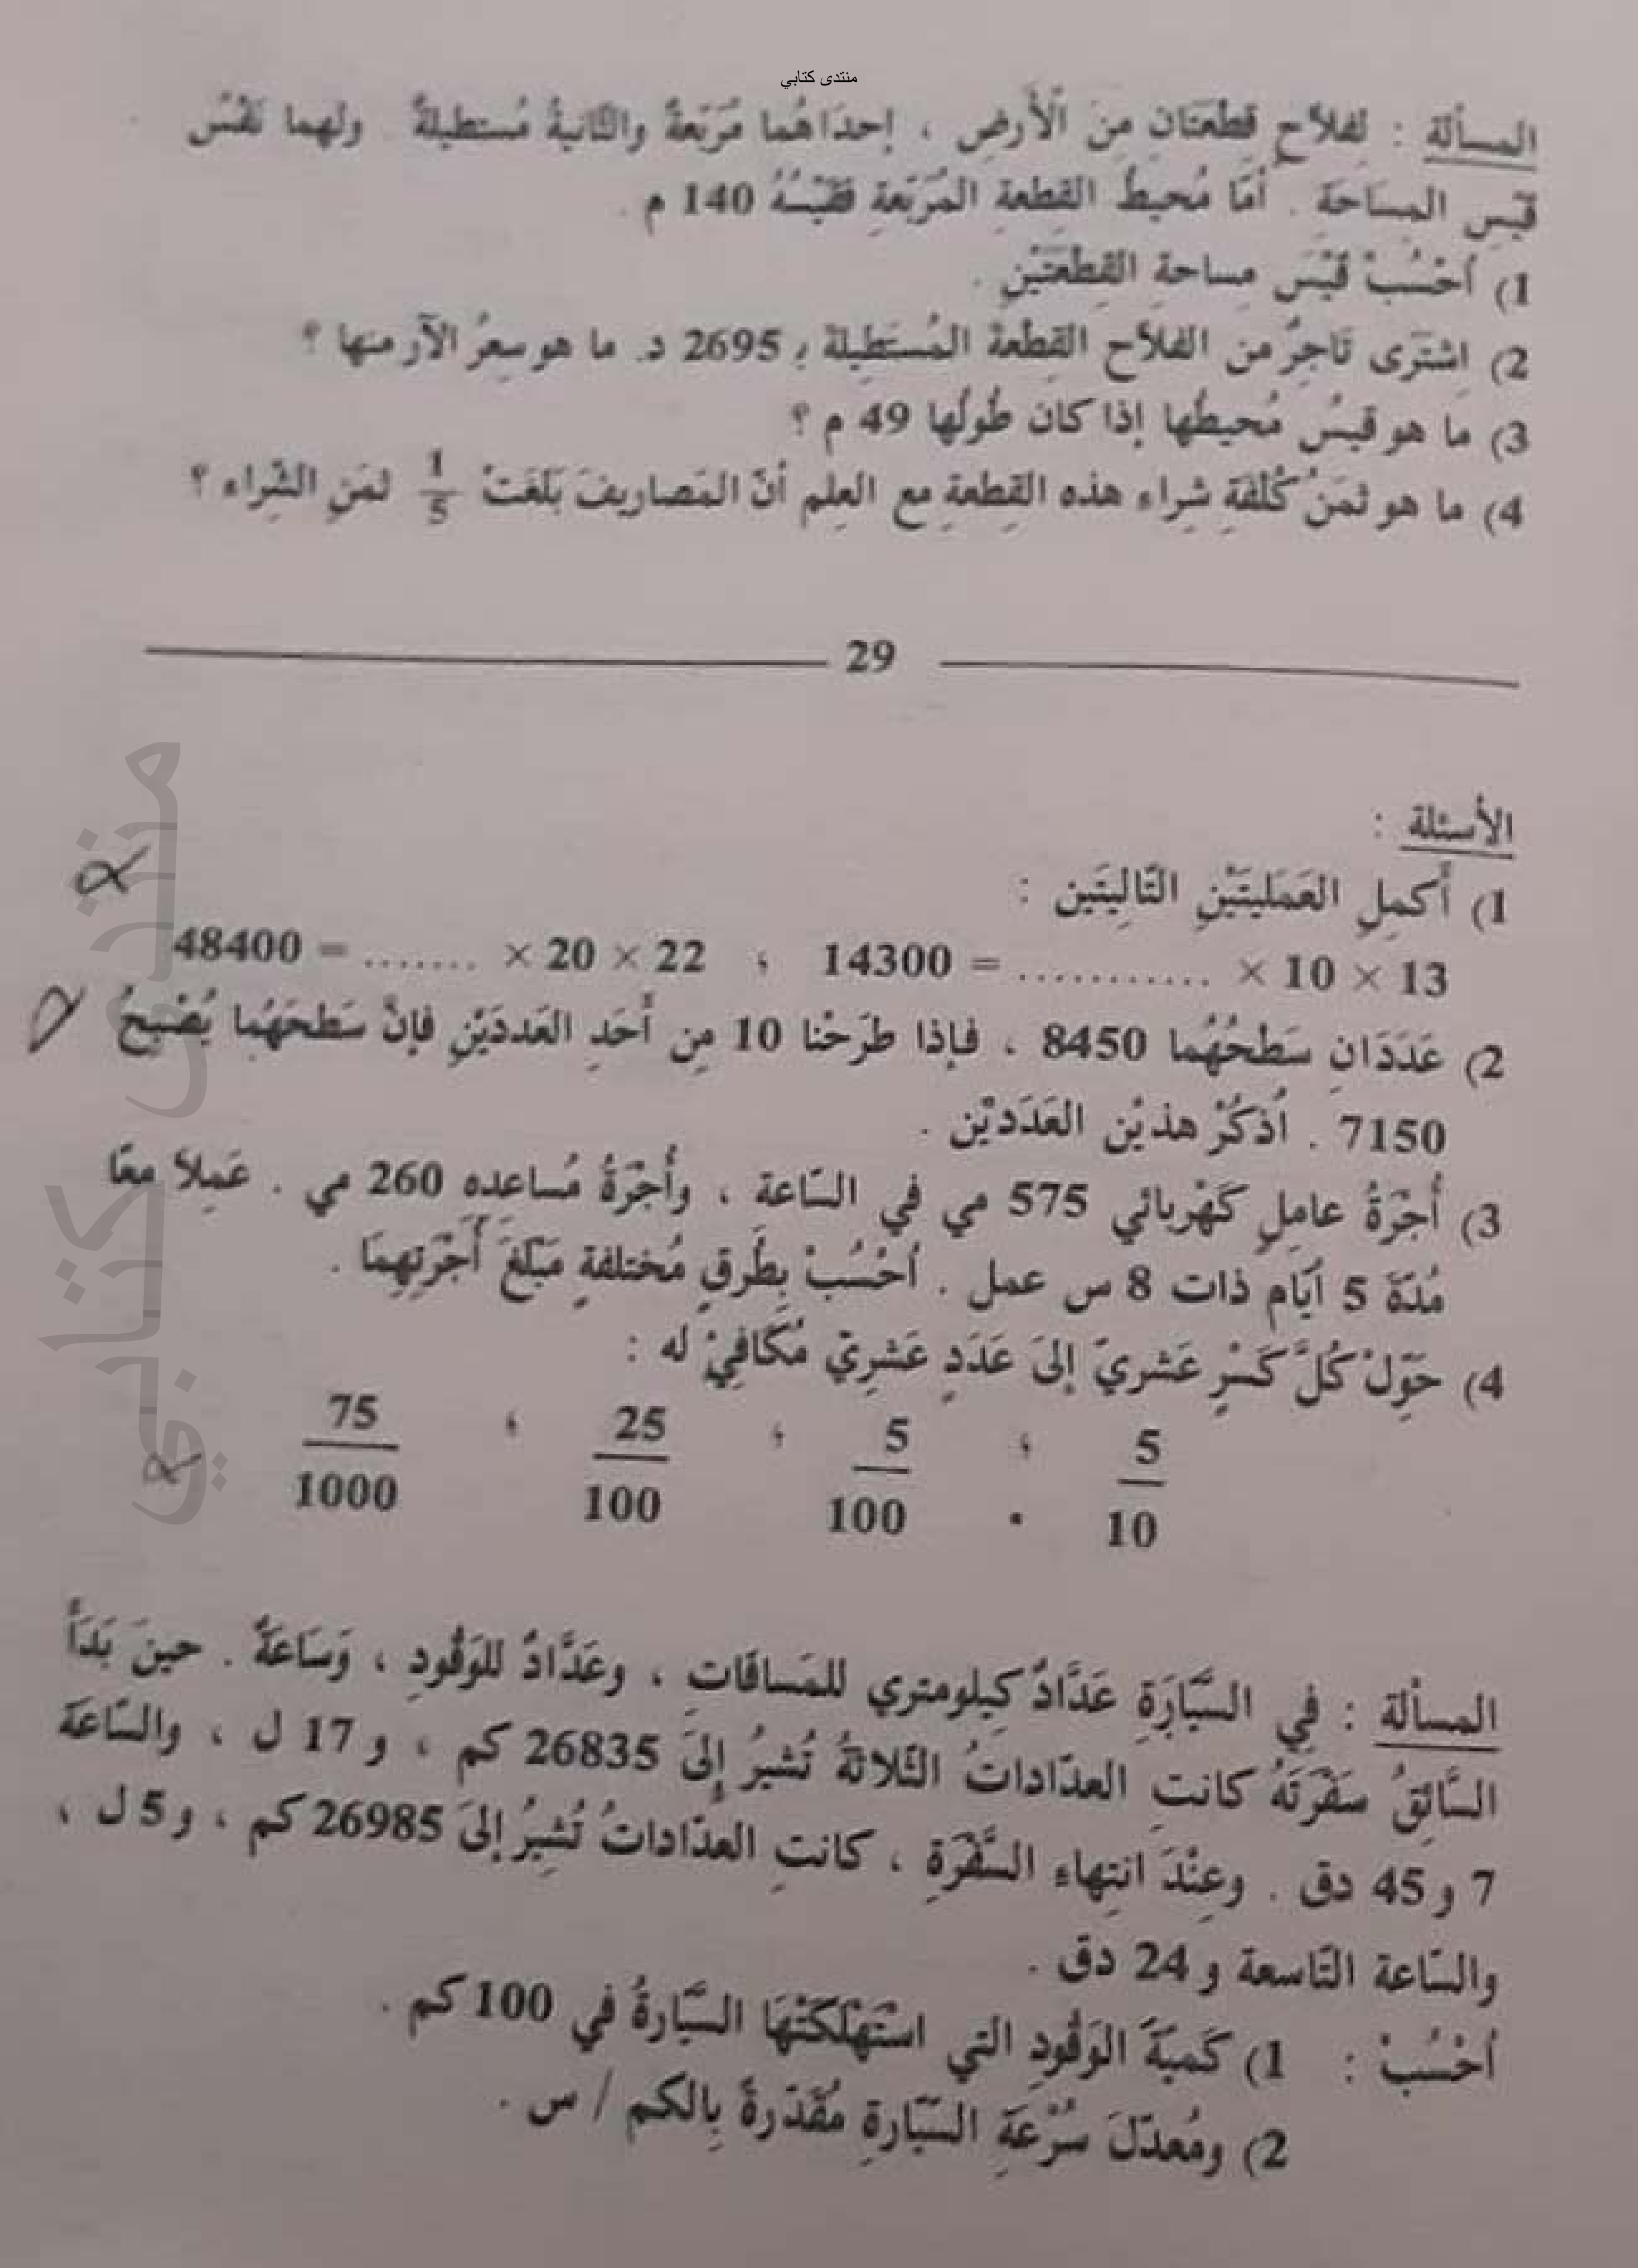 منتدى كتابي
المسألة : لفلاّحٍ قطعتانِ مِنَ الأرضِ ، إحدَاهُما مُرَبّعةٌ والثّانيةُ مُستطيلةٌ . ولهما نَفْسُ
قَيسِ المِسَاحَةِ . أمّا مُحيطُ القِطعةِ المُرَبّعةِ فقَيْسُهُ 140 م .
1) اُحْسُبْ قَيْسَ مِساحةِ القِطْعَتَيْنِ .
2) اِشتَرَى تَاجِرٌ من الفلاّح القِطْعةَ المُستَطِيلةَ بـ 2695 د. ما هو سِعرُ الآر منها ؟
3) مَا هو قيسُ مُحيطُها إذا كان طُولُها 49 م ؟
4) ما هو ثمَنُ كُلْفَةِ شِراء هذه القِطعةِ مع العِلم أنّ المَصاريفَ بَلَغَتْ 1/5 ثمَنِ الشِّراء ؟
29
الأسئلة :
1) أَكمِلِ العَمَليتَيْنِ التّالِيتَين :
13 × 10 × ........... = 14300 ؛ 22 × 20 × ....... = 48400
2) عَدَدَانِ سَطْحُهُما 8450 ، فإذا طَرَحْنا 10 مِن أَحَدِ العَددَيْنِ فإنّ سَطحَهُما يُصْبِحُ
7150 . اُذكُرْ هذيْن العَدَديْن .
3) أُجْرَةُ عامِلٍ كَهْربائي 575 مي في السّاعة ، وأُجْرَةُ مُساعدِه 260 مي . عَمِلاَ معًا
مُدّةَ 5 أيّام ذات 8 س عمل . اُحْسُبْ بِطُرقٍ مُختلفةٍ مَبْلَغَ أُجْرَتِهِمَا .
4) حَوِّلْ كُلَّ كَسْرٍ عَشريّ إلىَ عَدَدٍ عَشرِيّ مُكَافِئْ له :
5/10 ؛ 5/100 ؛ 25/100 ؛ 75/1000
المسألة : فِي السَّيّارَةِ عَدَّادٌ كِيلومتري للمَسافَاتِ ، وعَدَّادٌ للوَقُودِ ، وَسَاعَةٌ . حينَ بَدَأَ
السَّائِقُ سَفْرَتَهُ كانتِ العدّاداتُ الثّلاثةُ تُشيرُ إِلىَ 26835 كم ، و 17 ل ، والسّاعَة
7 و 45 دق . وعِنْدَ انتِهاءِ السَّفْرَةِ ، كانتِ العدّاداتُ تُشِيرُ إلىَ 26985 كم ، و 5 ل ،
والسّاعة التّاسعة و 24 دق .
اُحْسُبْ : 1) كَميّةَ الوَقُودِ التي اسْتَهْلَكَتْهَا السّيّارةُ في 100 كم .
2) ومُعدّلَ سُرْعَةِ السّيّارةِ مُقَدّرةً بِالكم / س .
منتدى كتابي